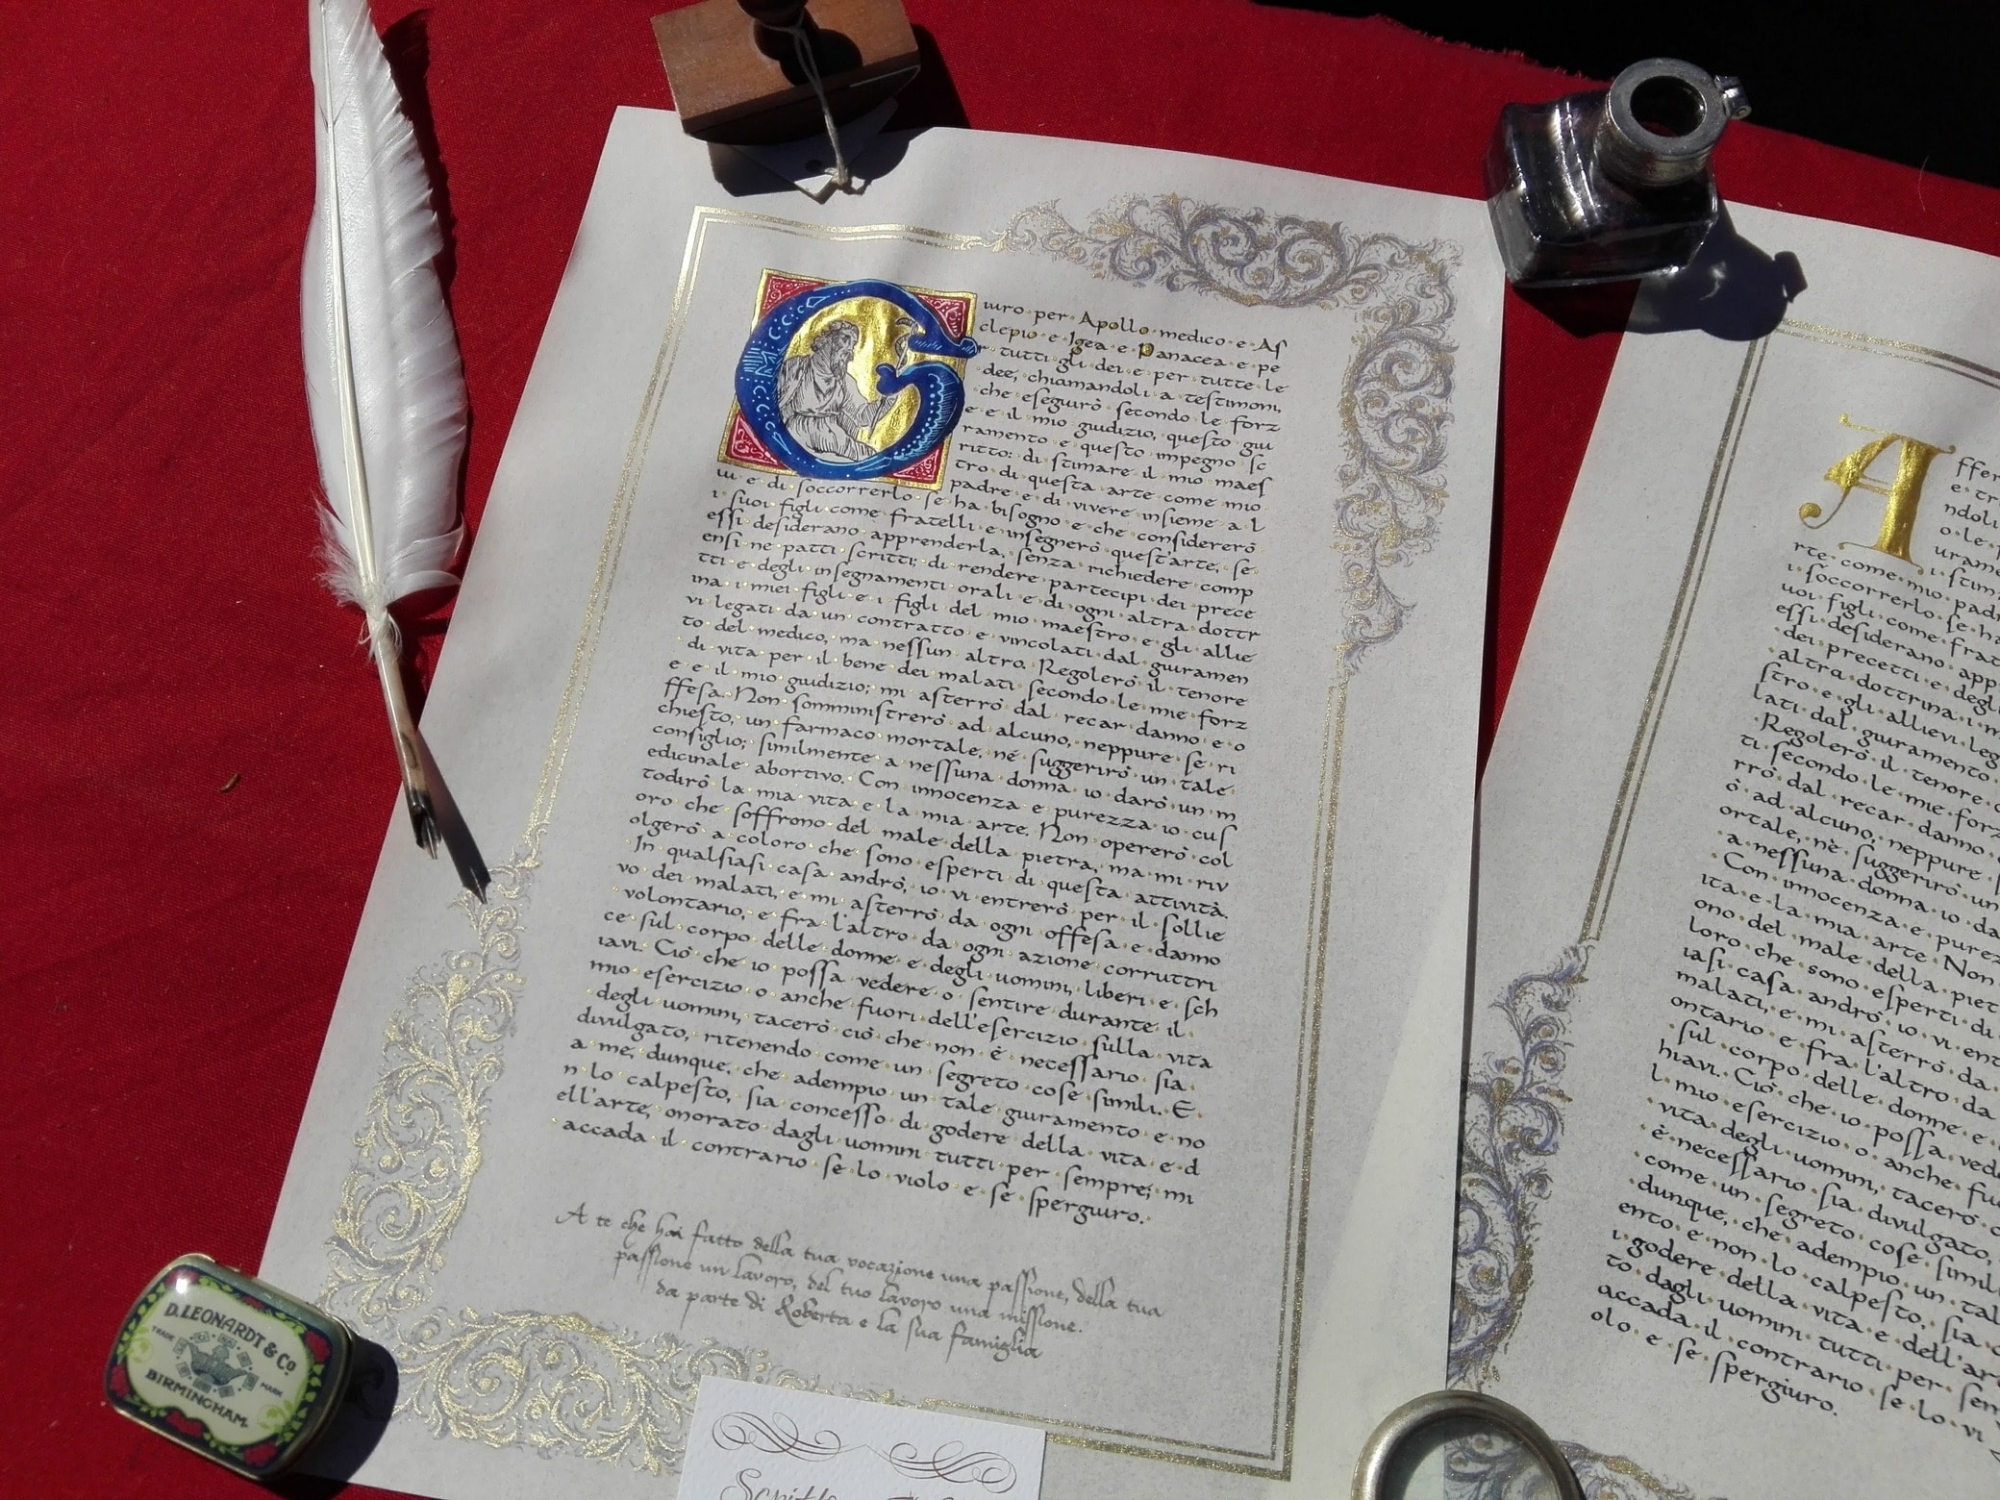 G
iuro per Apollo medico e Aſ
clepio e Igea e Panacea e pe
r tutti gli dei e per tutte le
dee, chiamandoli a teſtimoni,
che eſeguirò ſecondo le forz
e e il mio giudizio, queſto giu
ramento e queſto impegno ſc
ritto: di ſtimare il mio maeſ
tro di queſta arte come mio
padre e di vivere inſieme a l
ui e di ſoccorrerlo ſe ha biſogno e che conſidererò
i ſuoi figli come fratelli e inſegnerò queſt'arte, ſe
eſſi deſiderano apprenderla, ſenza richiedere comp
enſi ne patti ſcritti; di rendere partecipi dei prece
tti e degli inſegnamenti orali e di ogni altra dottr
ina i miei figli e i figli del mio maeſtro e gli allie
vi legati da un contratto e vincolati dal giuramen
to del medico, ma neſſun altro. Regolerò il tenore
di vita per il bene dei malati ſecondo le mie forz
e e il mio giudizio; mi aſterrò dal recar danno e o
ffeſa. Non ſomminiſtrerò ad alcuno, neppure ſe ri
chieſto, un farmaco mortale, né ſuggerirò un tale
conſiglio; ſimilmente a neſſuna donna io darò un m
edicinale abortivo. Con innocenza e purezza io cuſ
todirò la mia vita e la mia arte. Non opererò col
oro che ſoffrono del male della pietra, ma mi riv
olgerò a coloro che ſono eſperti di queſta attività.
In qualſiaſi caſa andrò, io vi entrerò per il ſollie
vo dei malati, e mi aſterrò da ogni offeſa e danno
volontario, e fra l'altro da ogni azione corruttri
ce ſul corpo delle donne e degli uomini, liberi e ſch
iavi. Ciò che io poſſa vedere o ſentire durante il
mio eſercizio o anche fuori dell'eſercizio ſulla vita
degli uomini, tacerò ciò che non è neceſſario ſia
divulgato, ritenendo come un ſegreto coſe ſimili. E
a me, dunque, che adempio un tale giuramento e no
n lo calpeſto, ſia conceſſo di godere della vita e d
ell'arte, onorato dagli uomini tutti per ſempre; mi
accada il contrario ſe lo violo e ſe ſpergiuro.
A te che hai fatto della tua vocazione una paſſione, della tua
paſſione un lavoro, del tuo lavoro una miſſione.
da parte di Roberta e la ſua famiglia
A
ffer
e tr
ndoli
o le f
urame
i ſtim
rte come mio padr
i ſoccorrerlo ſe ha
uoi figli come frat
eſſi deſiderano app
dei precetti e degl
altra dottrina i m
ſtro e gli allievi leg
lati dal giuramento
Regolerò il tenore
ti ſecondo le mie forz
rrò dal recar danno
ò ad alcuno, neppure ſ
ortale, nè ſuggerirò un
a neſſuna donna io da
Con innocenza e purez
ita e la mia arte. Non
ono del male della piet
loro che ſono eſperti di
iaſi caſa andrò, io vi ent
malati, e mi aſterrò da
ontario e fra l'altro da
ſul corpo delle donne e
hiavi. Ciò che io poſſa ved
l mio eſercizio o anche fu
vita degli uomini, tacerò c
è neceſſario ſia divulgato,
come un ſegreto coſe ſimil
dunque, che adempio un tal
ento e non lo calpeſto, ſia c
i godere della vita e dell'ar
to dagli uomini tutti per ſem
accada il contrario ſe lo vi
olo e ſe ſpergiuro.
D. LEONARDT & Co
TRADE MARK
BIRMINGHAM.